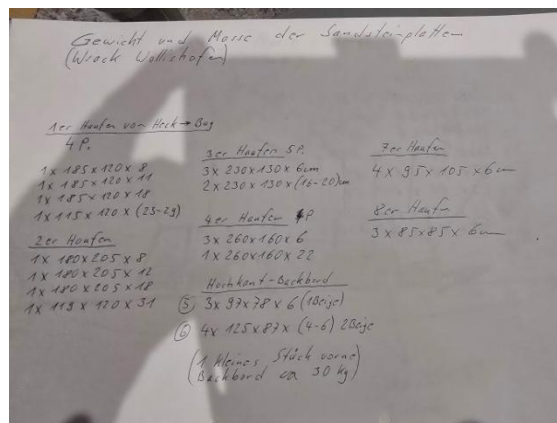 Gewicht und Masse der Sandsteinplatten
(Wrack Wollishofen)
1er Haufen von Heck → Bug
4 P.
1 x 185 x 120 x 8
1 x 185 x 120 x 11
1 x 185 x 120 x 18
1 x 115 x 120 x (23-29)
2er Haufen
1 x 180 x 205 x 8
1 x 180 x 205 x 12
1 x 180 x 205 x 18
1 x 119 x 120 x 31
3er Haufen 5P.
3 x 230 x 130 x 6cm
2 x 230 x 130 x (16-20)cm
4er Haufen 4P
3 x 260 x 160 x 6
1 x 260 x 160 x 22
Hochkant-Backbord
⑤ 3 x 97 x 78 x 6 (1Beige)
⑥ 4 x 125 x 87 x (4-6) 2Beige
(1 kleines Stück vorne
Backbord ca 30 kg)
7er Haufen
4 x 95 x 105 x 6cm
8er Haufen
3 x 85 x 85 x 6cm